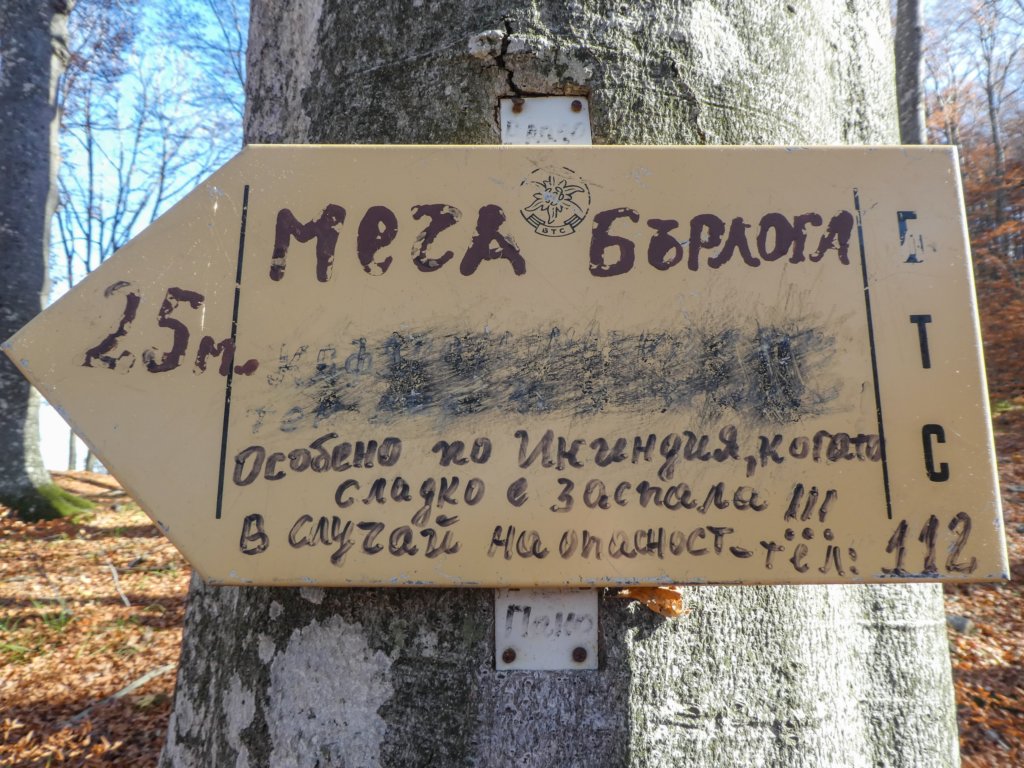 МеЧА БЪРЛОГА
БТС
25 м.
Особено по Икиндия, когато
сладко е заспала !!!
В случай на опасност - тёл: 112
Б
Т
С